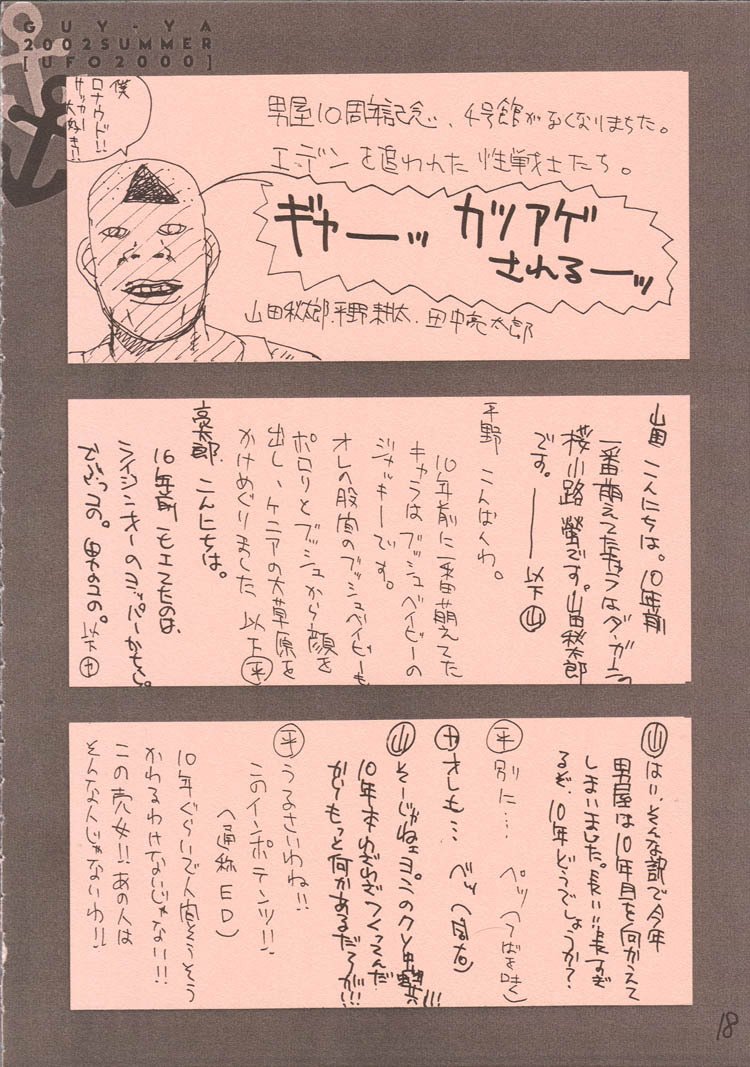 GUY-YA
2002SUMMER
[UFO2000]
僕
ロナウド!!
サッカー
大好き!!
男屋10周年記念、4号館がなくなりまちた。
エデンを追われた性戦士たち。
ギャーーッ カツアゲ
されるーーッ
山田秋太郎.平野耕太.田中亮太郎
山田 こんにちは。10年前
一番萌えてたキャラはダ・ガーンの
桜小路螢です。山田秋太郎
です。――以下山
平野 こんばくわ。
10年前に一番萌えてた
キャラはブッシュベイビーの
ジャッキーです。
オレの股間のブッシュベイビーも
ポロリとブッシュから顔を
出し、ケニアの大草原を
かけめぐりました 以下平
亮太郎. こんにちは。
10年前モエてたのは、
ライジンオーの
男のコの。以下た
山 はい、そんな訳で今年
男屋は10年目を向かえて
しまいました。長い!!長すぎ
るぞ、10年どうでしょうか?
平 別に… ペッ(つばを吐く)
た オレも… ペッ
山 そーじゃねェ
10年本わざわざつくってんだ
からもっと何かあるだろが!!!
平 うるさいわね!!
このインポテンツ!!
(通称ED)
10年ぐらいで人間そうそう
かわるわけないじゃない!!!
この売女!!あの人は
そんな人じゃないわ!!
18